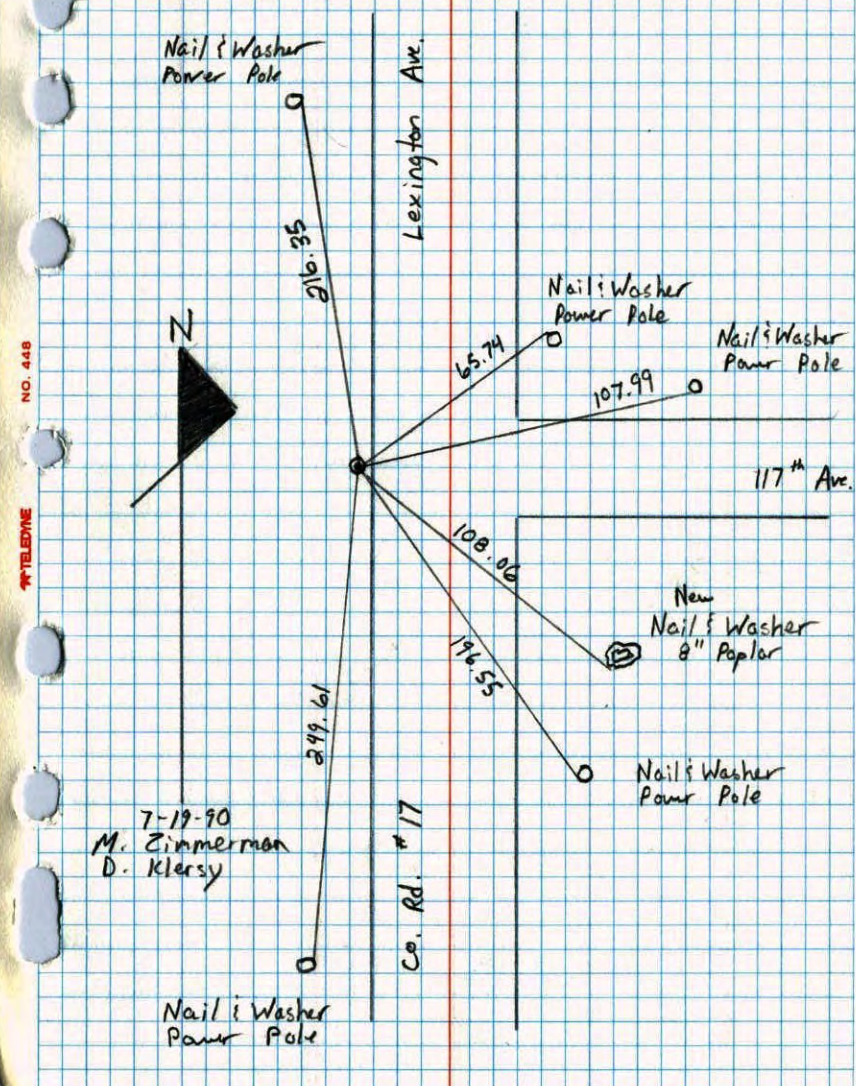 Nail & Washer
Power Pole
Lexington Ave.
216.35
Nail & Washer
Power Pole
Nail & Washer
Power Pole
N
65.74
107.99
NO. 448
117th Ave.
TELEDYNE
108.06
New
Nail & Washer
8" Poplar
196.55
249.61
Nail & Washer
Power Pole
7-19-90
M. Zimmerman
D. Klersy
Co. Rd. #17
Nail & Washer
Power Pole